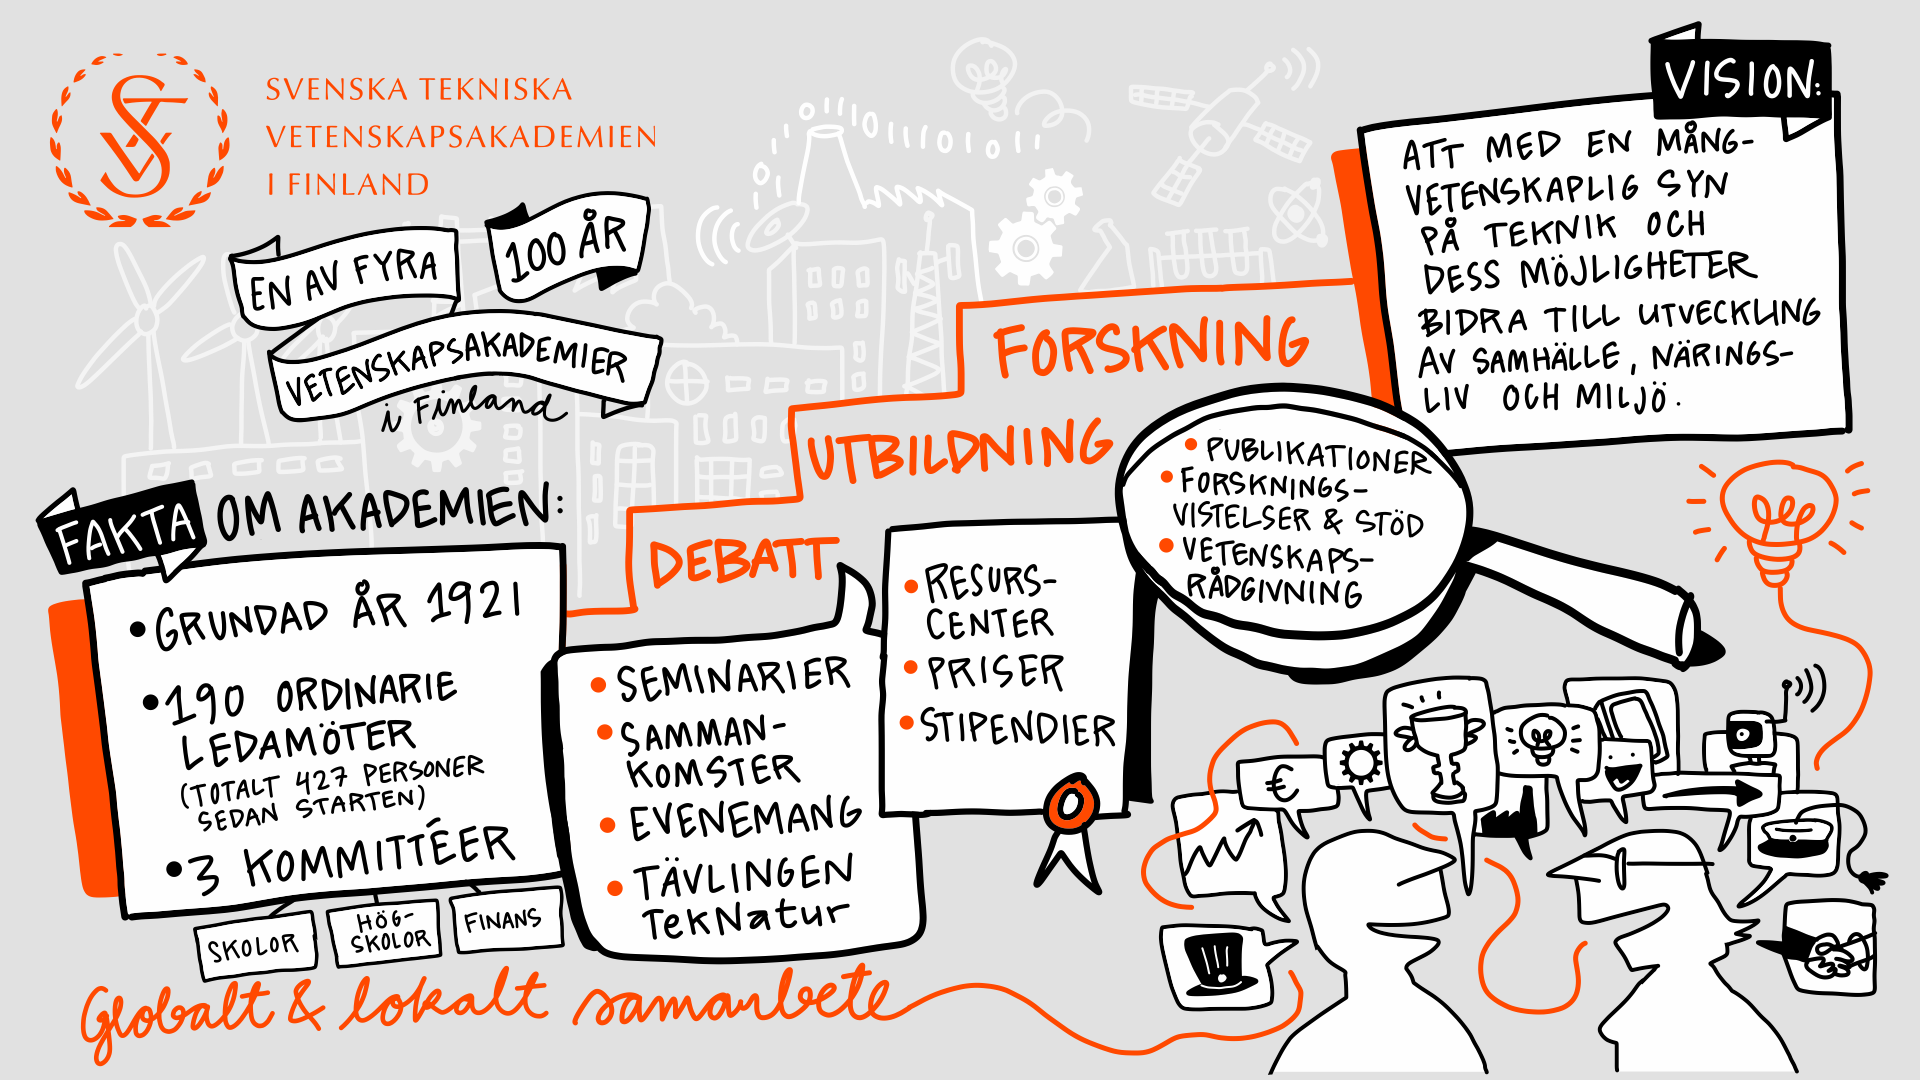 SVENSKA TEKNISKA
VETENSKAPSAKADEMIEN
I FINLAND
EN AV FYRA
100 ÅR
VETENSKAPSAKADEMIER
i Finland
FAKTA OM AKADEMIEN:
• GRUNDAD ÅR 1921
• 190 ORDINARIE
LEDAMÖTER
(TOTALT 427 PERSONER
SEDAN STARTEN)
• 3 KOMMITTÉER
SKOLOR
HÖG-
SKOLOR
FINANS
DEBATT
• SEMINARIER
• SAMMAN-
KOMSTER
• EVENEMANG
• TÄVLINGEN
TekNatur
UTBILDNING
• RESURS-
CENTER
• PRISER
• STIPENDIER
FORSKNING
• PUBLIKATIONER
• FORSKNINGS-
VISTELSER & STÖD
• VETENSKAPS-
RÅDGIVNING
VISION:
ATT MED EN MÅNG-
VETENSKAPLIG SYN
PÅ TEKNIK OCH
DESS MÖJLIGHETER
BIDRA TILL UTVECKLING
AV SAMHÄLLE, NÄRINGS-
LIV OCH MILJÖ.
€
Globalt & lokalt samarbete